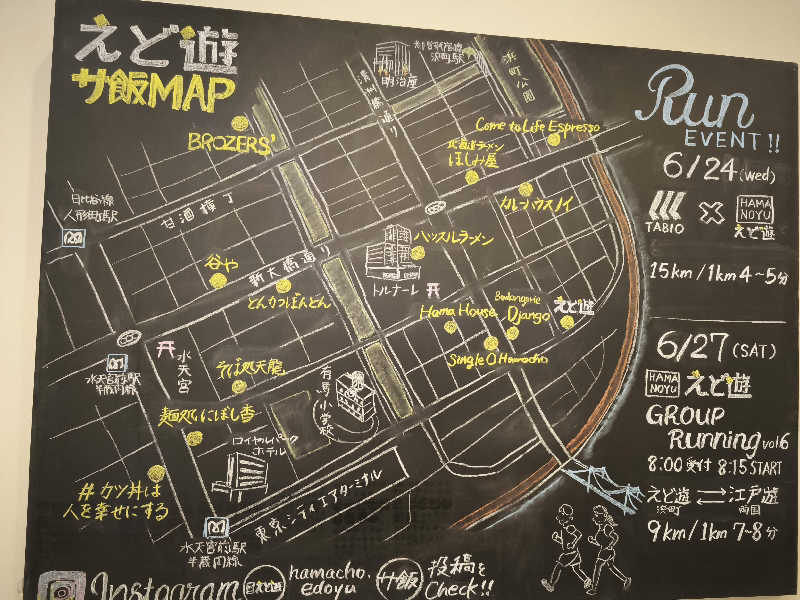 えど遊
サ飯MAP
BROZERS'
日比谷線
人形町駅
甘酒横丁
清洲橋通り
明治座
浜町駅
浜町公園
Come to Life Espresso
北海道ラーメン
ほしみ屋
カレーハウスノイ
ハッスルラーメン
トルナーレ
谷や
新大橋通り
とんかつぼんどん
Hama House
Boulangerie
Django
えど遊
Single O Hamacho
水天宮
水天宮前駅
半蔵門線
そば処天龍
有馬小学校
麺処にぼし香
ロイヤルパーク
ホテル
#カツ丼は
人を幸せにする
東京シティエアターミナル
水天宮前駅
半蔵門線
Instagram
えど遊
hamacho.
edoyu
サ飯
投稿を
Check!!
Run
EVENT!!
6/24(wed)
TABIO
×
HAMA
NOYU
えど遊
15km/1km4~5分
6/27(SAT)
HAMA
NOYU
えど遊
GROUP
Running vol6
8:00受付 8:15START
えど遊 ⇄ 江戸遊
浜町 両国
9km/1km7~8分